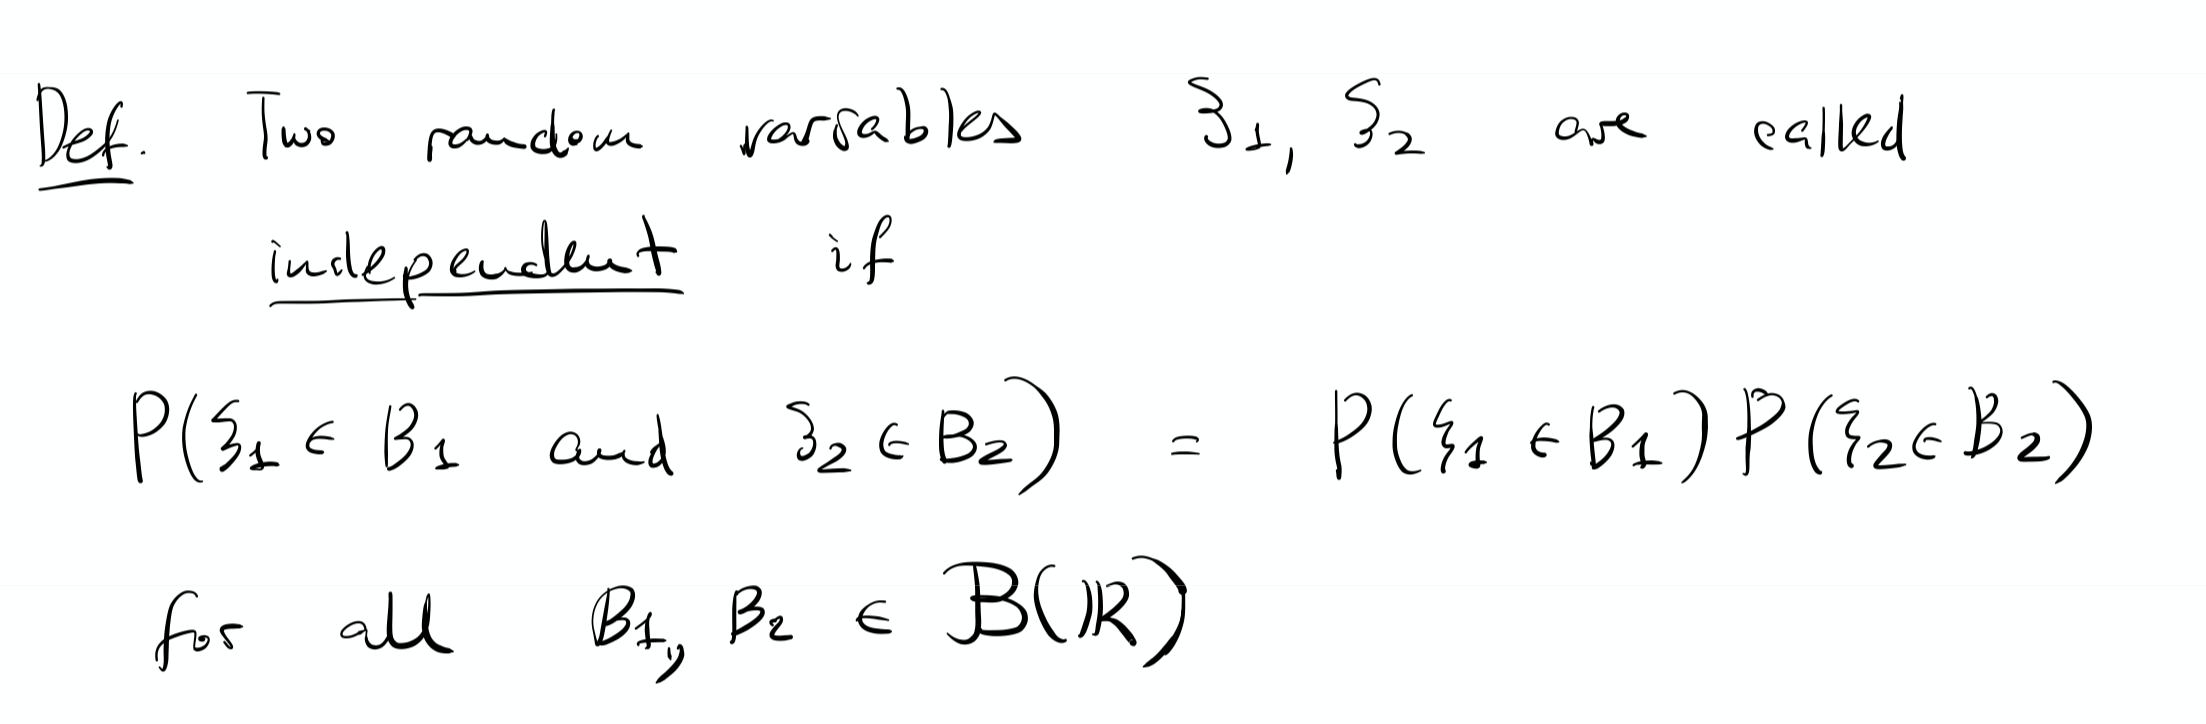 Def. Two random variables ξ₁, ξ₂ are called
independent if
P(ξ₁ ∈ B₁ and ξ₂ ∈ B₂) = P(ξ₁ ∈ B₁) P(ξ₂ ∈ B₂)
for all B₁, B₂ ∈ ℬ(ℝ)